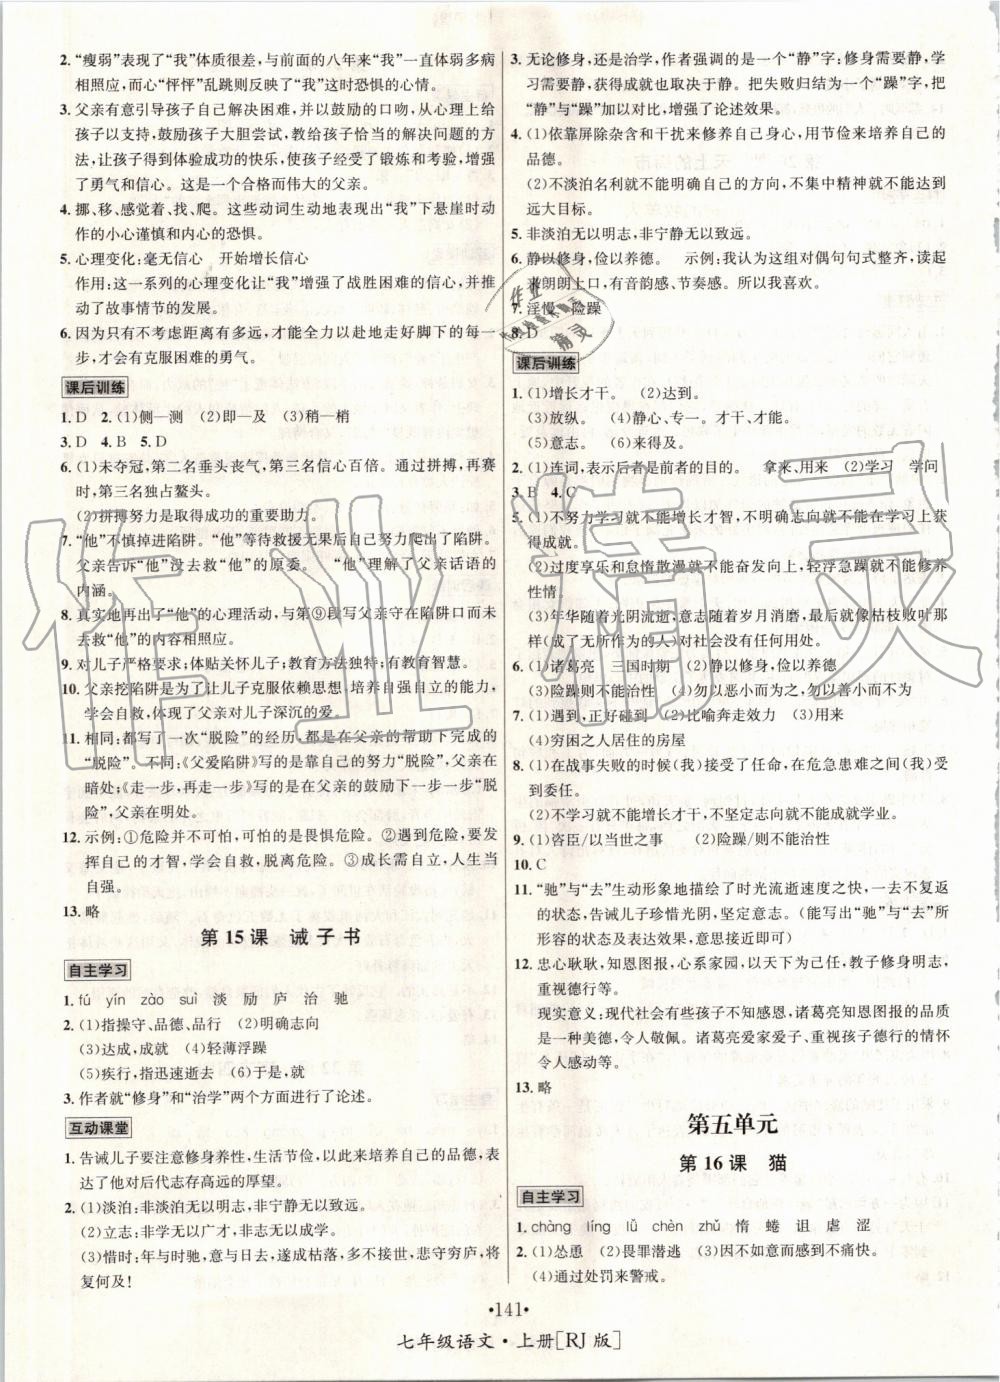 2. “瘦弱”表现了“我”体质很差、与前面的八年来“我”一直体弱多病
相照应,而心“怦怦”乱跳则反映了“我”这时恐惧的心情。
3. 父亲有意引导孩子自己解决困难,并以鼓励的口吻,从心理上给
孩子以支持,鼓励孩子大胆尝试,教给孩子恰当的解决问题的方
法,让孩子体验成功的快乐,使孩子经受了锻炼和考验,增强
了勇气和信心。这是一个合格而伟大的父亲。
4. 挪、移、感觉着、找、爬。这些动词生动地表现出“我”下悬崖时动
作的小心谨慎和内心的恐惧。
5. 心理变化:毫无信心 开始增长信心
作用:这一系列的心理变化让“我”增强了战胜困难的信心,推动
了故事情节的发展。
6. 因为只有不考虑距离有多远,才能全力以赴地走好脚下的每一
步,才会有克服困难的勇气。
课后训练
1. D 2. (1)侧—测 (2)即—及 (3)稍—梢
3. D 4. B 5. D
6. (1)未夺冠,第二名垂头丧气,第三名信心百倍。通过拼搏,再赛
时,第三名独占鳌头。
(2)拼搏努力是取得成功的重要助力。
7. “他”不慎掉进陷阱。“他”等待救援无果后自己努力爬出了陷阱。
父亲告诉“他”没去救“他”的原委。 “他”理解了父亲话语的
内涵。
8. 真实地再出了“他”的心理活动,与第⑨段写父亲守在陷阱口而未
去救“他”的内容相照应。
9. 对儿子严格要求;体贴关怀儿子;教育方法独特;有教育智慧。
10. 父亲挖陷阱是为了让儿子克服依赖思想,培养自强自立的能力,
学会自救,体现了父亲对儿子深沉的爱。
11. 相同:都写了一次“脱险”的经历,都是在父亲的帮助下完成的
“脱险”。不同:《父爱陷阱》写的是靠自己努力“脱险”,父亲在
暗处;《走一步,再走一步》写的是在父亲的鼓励下一步一步“脱
险”,父亲在明处。
12. 示例:①危险并不可怕,可怕的是畏惧危险。②遇到危险,要发
挥自己的才智,学会自救,脱离危险。③成长需自立,人生当
自强。
13. 略
第 15 课 诫 子 书
自主学习
1. fú yín zào suì 淡 励 庐 治 驰
2. (1)指操守、品德、品行 (2)明确志向
(3)达成,成就 (4)轻薄浮躁
(5)疾行,指迅速逝去 (6)于是,就
3. 作者就“修身”和“治学”两个方面进行了论述。
互动课堂
1. 告诫儿子要注意修身养性,生活节俭,以此来培养自己的品德,表
达了他对后代志存高远的厚望。
2. (1)淡泊:非淡泊无以明志,非宁静无以致远。
(2)立志:非学无以广才,非志无以成学。
(3)惜时:年与时驰,意与日去,遂成枯落,多不接世,悲守穷庐,将
复何及!
3. 无论修身,还是治学,作者强调的是一个“静”字:修身需要静,学
习需要静,获得成就也取决于静。把失败归结为一个“躁”字,把
“静”与“躁”加以对比,增强了论述效果。
4. (1)依靠屏除杂含和干扰来修养自己身心,用节俭来培养自己的
品德。
(2)不淡泊名利就不能明确自己的方向,不集中精神就不能达到
远大目标。
5. 非淡泊无以明志,非宁静无以致远。
6. 静以修身,俭以养德。 示例:我认为这组对偶句句式整齐,读起
来朗朗上口,有音韵感、节奏感。所以我喜欢。
7. 淫慢 险躁
8. D
课后训练
1. (1)增长才干。 (2)达到。
(3)放纵。 (4)静心、专一。才干、才能。
(5)意志。 (6)来得及。
2. (1)连词,表示后者是前者的目的。 拿来、用来 (2)学习 学问
3. B 4. C
5. (1)不努力学习就不能增长才智,不明确志向就不能在学习上获
得成就。
(2)过度享乐和怠惰散漫就不能奋发向上,轻浮急躁就不能修养
性情。
(3)年华随着光阴流逝,意志随着岁月消磨,最后就像枯枝败叶
那样(成了无所作为的人)对社会没有任何用处。
6. (1)诸葛亮 三国时期 (2)静以修身,俭以养德
(3)险躁则不能治性 (4)勿以恶小而为之,勿以善小而不为
7. (1)遇到,正好碰到 (2)比喻奔走效力 (3)用来
(4)穷困之人居住的房屋
8. (1)在战事失败的时候(我)接受了任命,在危急患难之间(我)
受到委任。
(2)不学习就不能增长才干,不坚定志向就不能成就学业。
9. (1)咨臣/以当世之事 (2)险躁/则不能治性
10. C
11. “驰”与“去”生动形象地描绘了时光流逝速度之快,一去不复返
的状态,告诫儿子珍惜光阴,坚定意志。(能写出“驰”与“去”所
形容的状态及表达效果,意思接近即可)
12. 忠心耿耿,知恩图报,心系家园,以天下为己任,教子修身明志,
重视德行等。
现实意义:现代社会有些孩子不知感恩,诸葛亮知恩图报的品质
是一种美德,令人敬佩。诸葛亮爱家爱子、重视孩子德行的情怀
令人感动等。
13. 略
第五单元
第 16 课 猫
自主学习
1. chàng líng lǜ chèn zhǔ 惰 蜷 诅 虐 涩
2. (1)怂恿 (2)畏罪潜逃 (3)因不如意而感到不痛快。
(4)通过处罚来警戒。
·141·
七年级语文·上册[RJ 版]
作业精灵